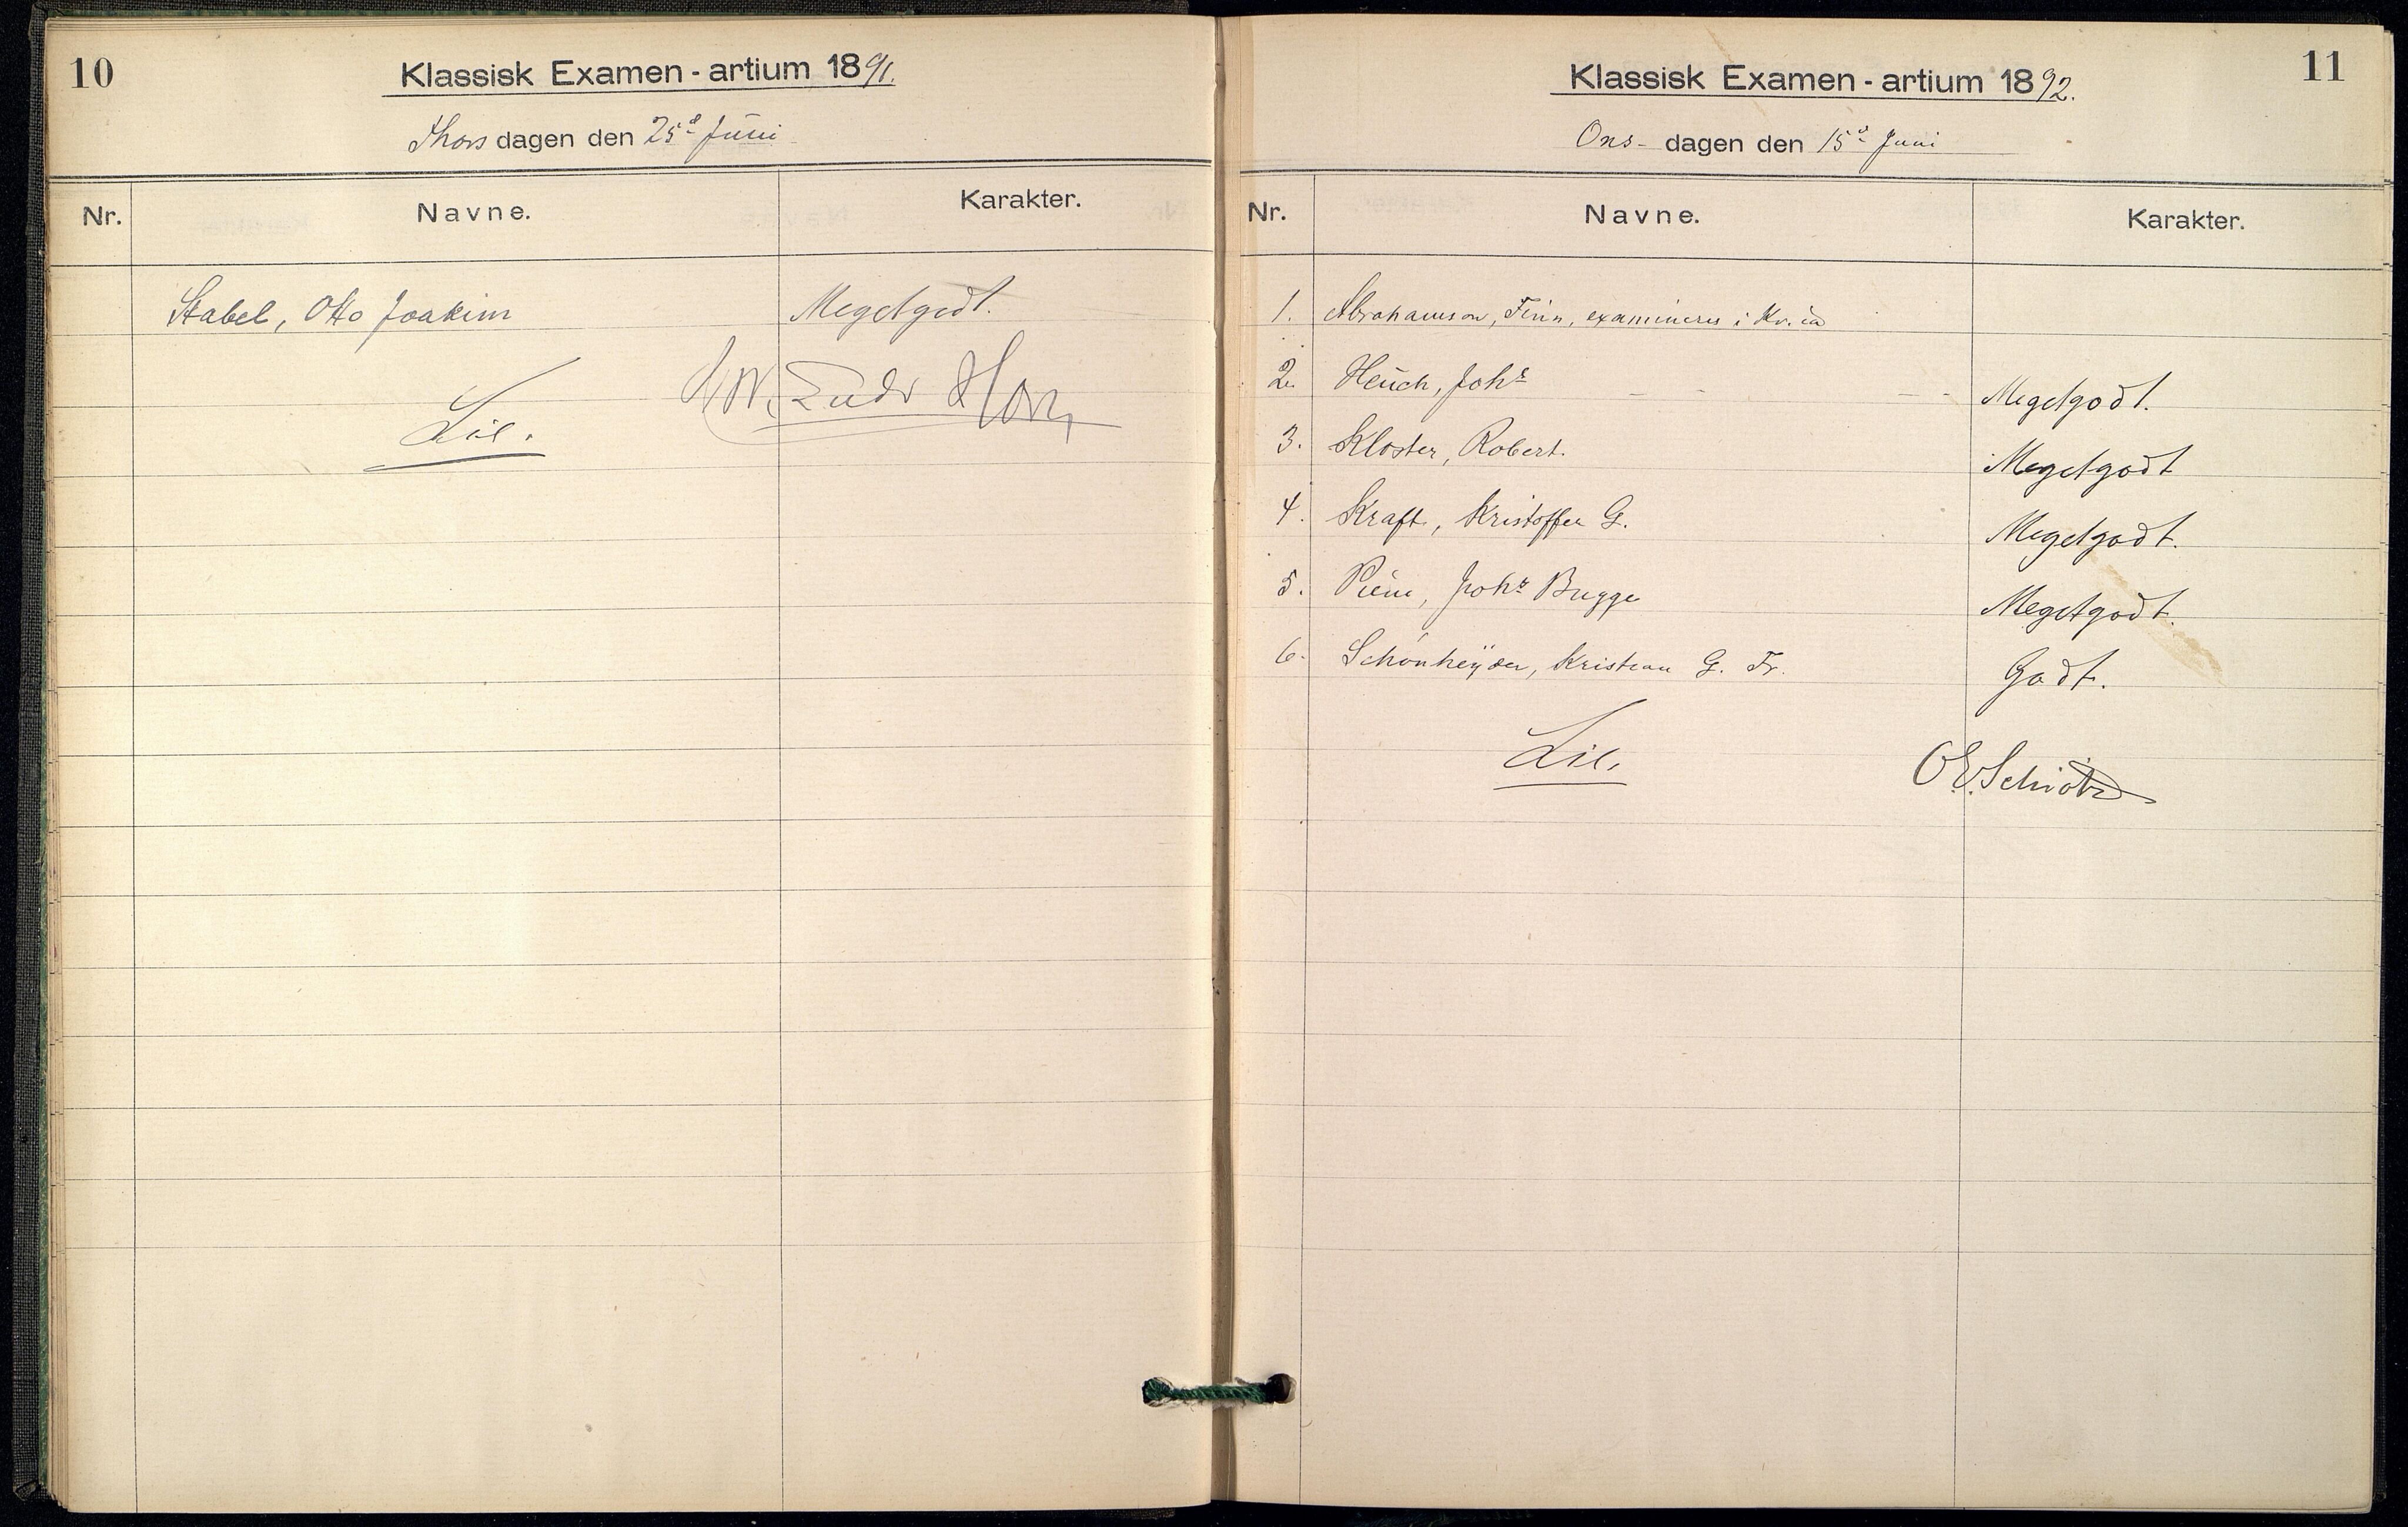 10
Klassisk Examen - artium 1891.
Thors dagen den 25d Juni
Nr. Navne. Karakter.
Stabel, Otto Joakim Megetgodt.
Lie.
11
Klassisk Examen - artium 1892.
Ons- dagen den 15d Juni
Nr. Navne. Karakter.
1. Abrahamson, Finn, examineres i Kr.ia
2. Heuch, Johs Megetgodt.
3. Kloster, Robert. Megetgodt
4. Kraft, Kristoffer G. Megetgodt.
5. Piene, Johs Bugge Megetgodt.
6. Schönheÿder, Kristian G. Fr. Godt.
Lie.
O.E. Schiøtz